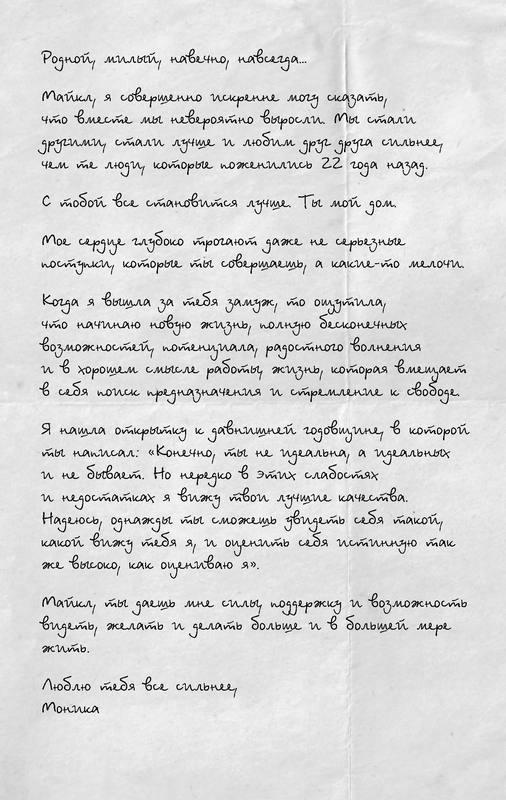 Родной, милый, навечно, навсегда...
Майкл, я совершенно искренне могу сказать,
что вместе мы невероятно выросли. Мы стали
другими, стали лучше и любим друг друга сильнее,
чем те люди, которые поженились 22 года назад.
С тобой все становится лучше. Ты мой дом.
Мое сердце глубоко трогают даже не серьезные
поступки, которые ты совершаешь, а какие-то мелочи.
Когда я вышла за тебя замуж, то ощутила,
что начинаю новую жизнь, полную бесконечных
возможностей, потенциала, радостного волнения
и в хорошем смысле работы, жизнь, которая вмещает
в себя поиск предназначения и стремление к свободе.
Я нашла открытку к давнишней годовщине, в которой
ты написал: «Конечно, ты не идеальна, а идеальных
и не бывает. Но нередко в этих слабостях
и недостатках я вижу твои лучшие качества.
Надеюсь, однажды ты сможешь увидеть себя такой,
какой вижу тебя я, и оценить себя истинную так
же высоко, как оцениваю я».
Майкл, ты даешь мне силы, поддержку и возможность
видеть, желать и делать больше и в большей мере
жить.
Люблю тебя все сильнее,
Моника